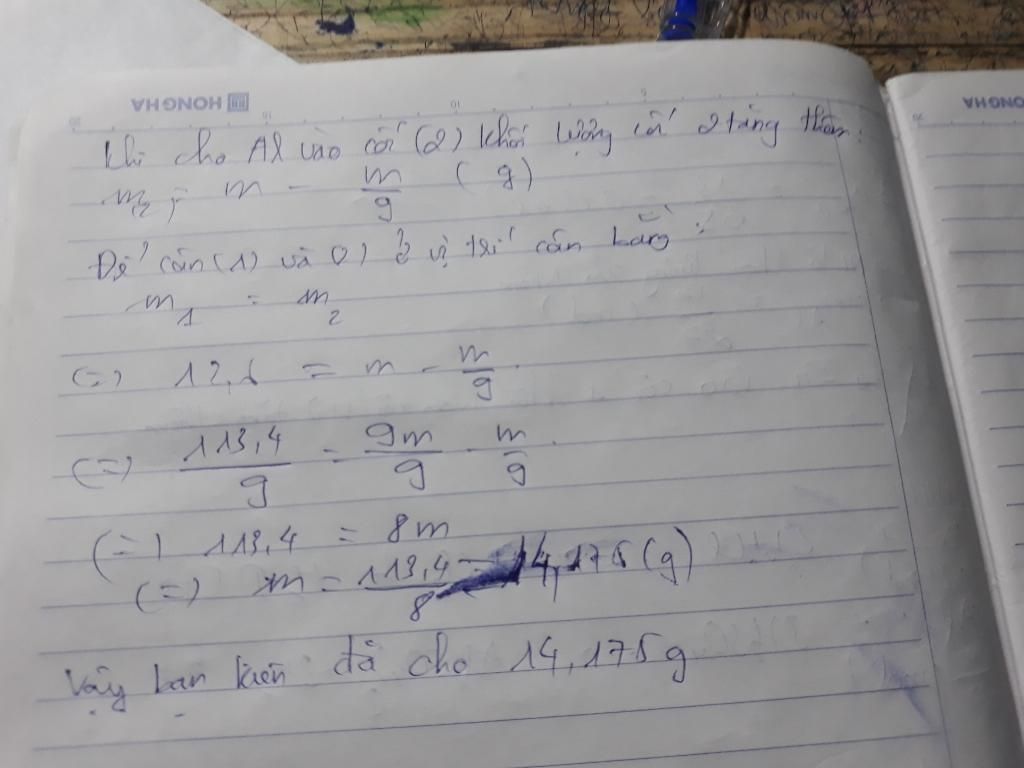 HONGHA
Khi cho Al vào cốc (2) khối lượng cốc 2 tăng thêm:
m₂ = m - m/9 (g)
Để cân (1) và (2) ở vị trí cân bằng:
m₁ = m₂
(=) 12,6 = m - m/9
(=) 113,4/9 = 9m/9 - m/9
(=) 113,4 = 8m
(=) m = 113,4/8 = 14,175 (g)
Vậy bạn kiên đã cho 14,175g